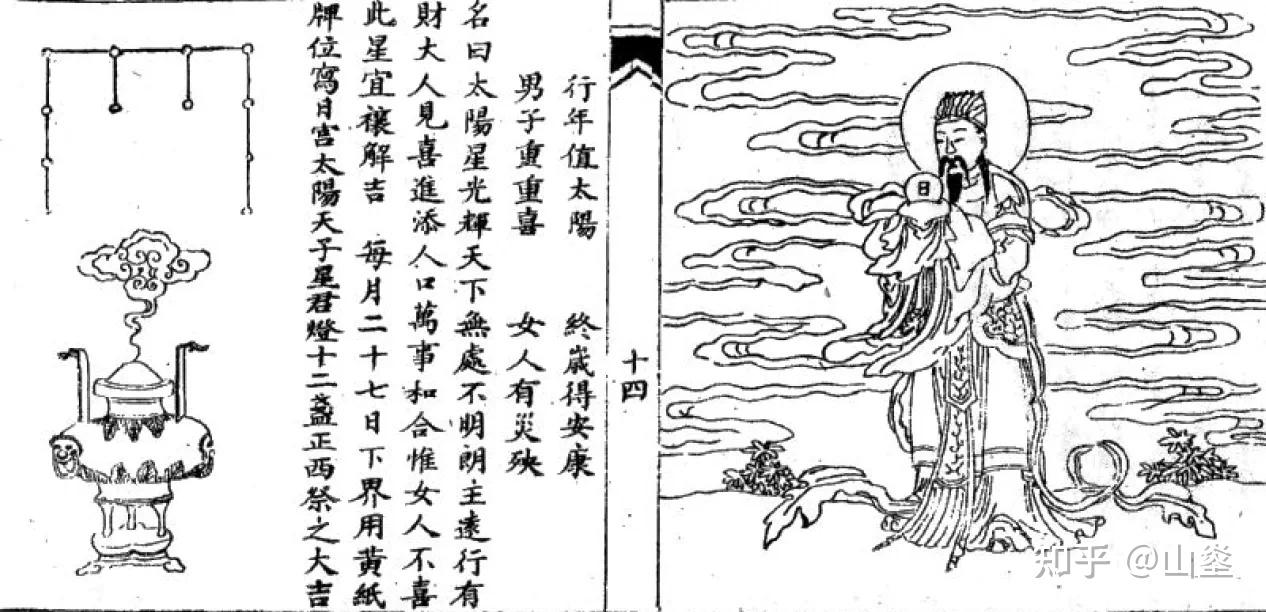 日
十四
行年值太陽　終歲得安康
男子重重喜　女人有災殃
名曰太陽星光輝天下無處不明朗主遠行有
財大人見喜進添人口萬事和合惟女人不喜
此星宜禳解吉　每月二十七日下界用黃紙
牌位寫月宮太陽天子星君燈十二盞正西祭之大吉
知乎 @山垒